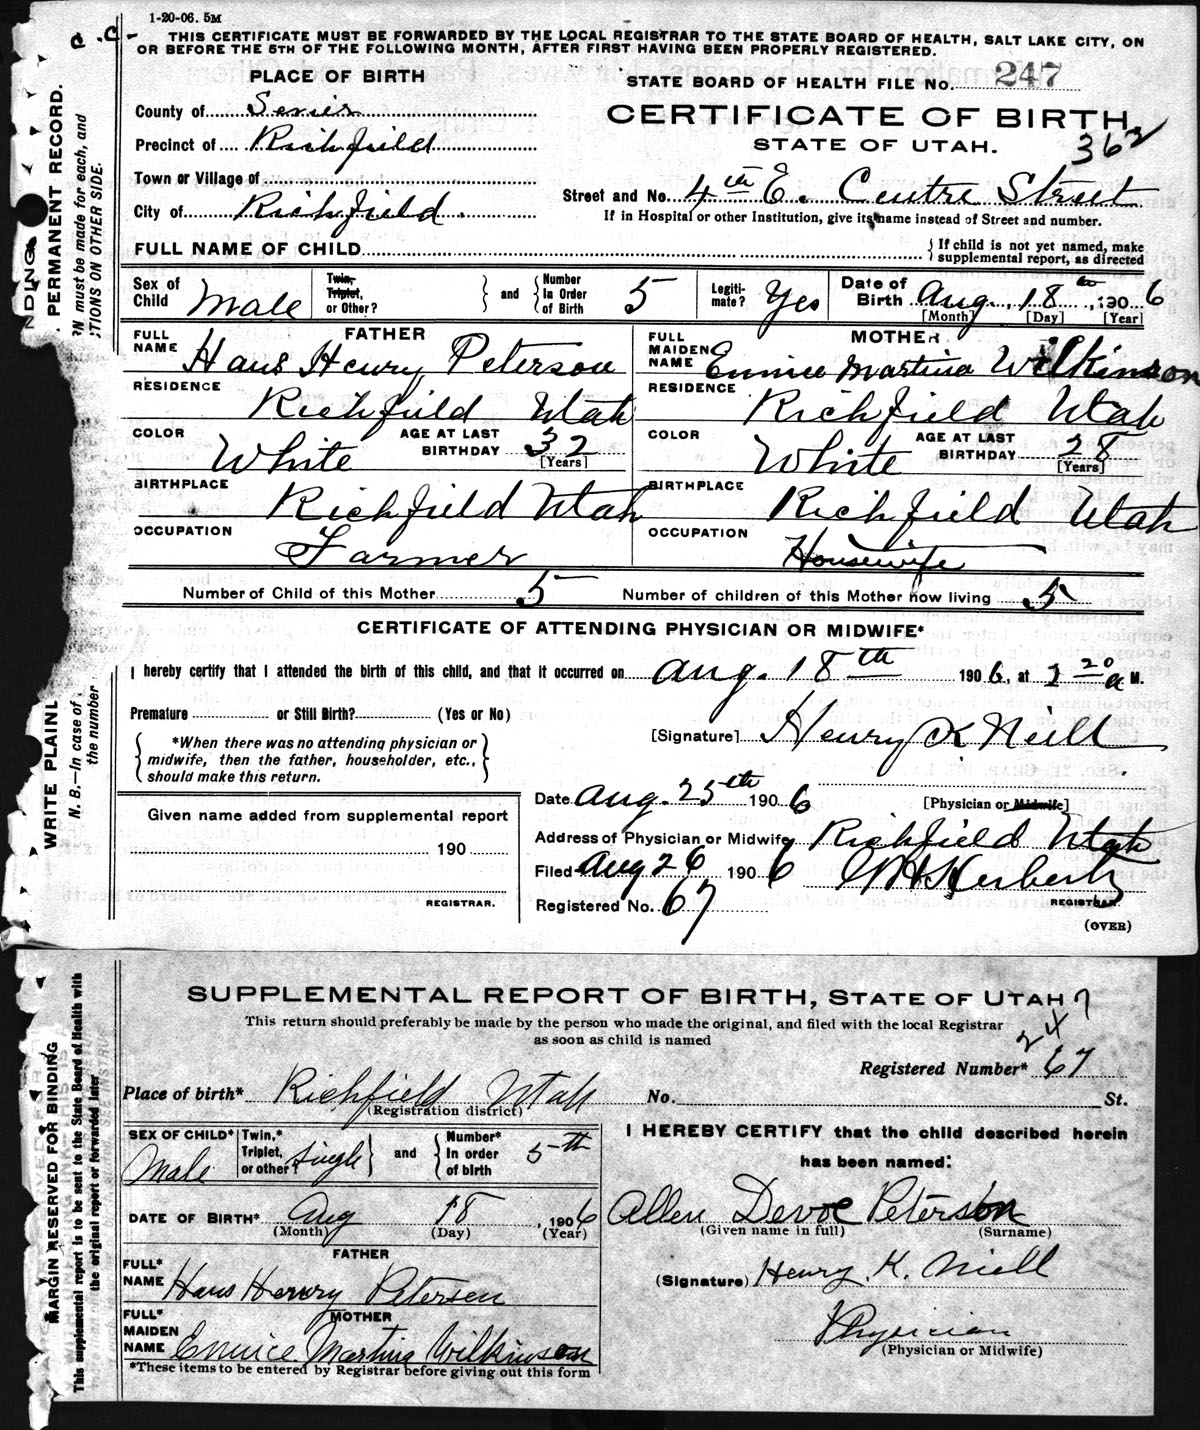 1-20-06. 5M
C.C.-
THIS CERTIFICATE MUST BE FORWARDED BY THE LOCAL REGISTRAR TO THE STATE BOARD OF HEALTH, SALT LAKE CITY, ON
OR BEFORE THE 5TH OF THE FOLLOWING MONTH, AFTER FIRST HAVING BEEN PROPERLY REGISTERED.
PLACE OF BIRTH
STATE BOARD OF HEALTH FILE No. 247
County of Sevier
CERTIFICATE OF BIRTH
Precinct of Richfield
STATE OF UTAH.
362
Town or Village of
Street and No. 4th E. Centre Street
City of Richfield
If in Hospital or other Institution, give its name instead of Street and number.
FULL NAME OF CHILD
If child is not yet named, make
supplemental report, as directed
Sex of Child Male
Twin, Triplet, or Other?
and
Number In Order of Birth 5
Legiti-mate? Yes
Date of Birth Aug. 18th, 1906
[Month] [Day] [Year]
FATHER
FULL NAME Hans Henry Peterson
RESIDENCE Richfield Utah
COLOR White
AGE AT LAST BIRTHDAY 32
[Years]
BIRTHPLACE Richfield Utah
OCCUPATION Farmer
MOTHER
FULL MAIDEN NAME Eunice Martina Wilkinson
RESIDENCE Richfield Utah
COLOR White
AGE AT LAST BIRTHDAY 28
[Years]
BIRTHPLACE Richfield Utah
OCCUPATION Housewife
Number of Child of this Mother 5 Number of children of this Mother now living 5
CERTIFICATE OF ATTENDING PHYSICIAN OR MIDWIFE*
I hereby certify that I attended the birth of this child, and that it occurred on Aug. 18th 1906, at 20 a M.
Premature or Still Birth? (Yes or No)
[Signature] Henry K Neill
*When there was no attending physician or
midwife, then the father, householder, etc.,
should make this return.
Date Aug. 25th 1906
[Physician or Midwife]
Given name added from supplemental report
190
REGISTRAR.
Address of Physician or Midwife Richfield Utah
Filed Aug 26 1906 Herbert
REGISTRAR.
Registered No. 67
(OVER)
NDING
PERMANENT RECORD.
N must be made for each, and
TIONS ON OTHER SIDE.
WRITE PLAINL
N. B.—In case of
the number
SUPPLEMENTAL REPORT OF BIRTH, STATE OF UTAH
247
This return should preferably be made by the person who made the original, and filed with the local Registrar
as soon as child is named
Registered Number* 67
Place of birth* Richfield Utah
(Registration district)
No. St.
SEX OF CHILD* Male
Twin,* Triplet, or other? Single
and
Number* In order of birth 5-th
I HEREBY CERTIFY that the child described herein
has been named:
DATE OF BIRTH* Aug 18, 1906
(Month) (Day) (Year)
Allen Devoe Peterson
(Given name in full) (Surname)
FATHER
FULL* NAME Hans Henry Petersen
(Signature) Henry K. Niell
MOTHER
FULL* MAIDEN NAME Eunice Martina Wilkinson
Physician
(Physician or Midwife)
*These items to be entered by Registrar before giving out this form
MARGIN RESERVED FOR BINDING
This supplemental report is to be sent to the State Board of Health with
the original report or forwarded later